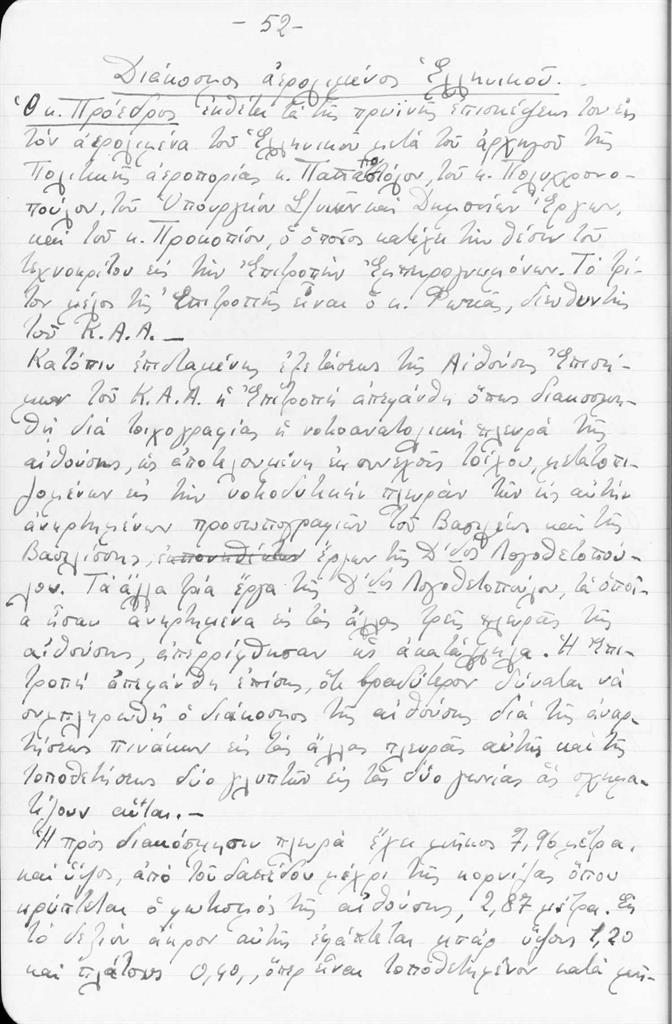 - 52 -
Διάκοσμος ἀερολιμένος Ἑλληνικοῦ.
Ὁ κ. Πρόεδρος ἐκθέτει τὰ τῆς πρωϊνῆς ἐπισκέψεως του εἰς
τὸν ἀερολιμένα τοῦ Ἑλληνικοῦ μετὰ τοῦ ἀρχηγοῦ τῆς
Πολιτικῆς ἀεροπορίας κ. Παπαποστόλου, τοῦ κ. Πολυχρονο-
πούλου, τοῦ Ὑπουργείου Σ/νιῶν καὶ Δημοσίων Ἔργων,
καὶ τοῦ κ. Προκοπίου, ὁ ὁποῖος κατέχει τὴν θέσιν τοῦ
τεχνοκρίτου εἰς τὴν Ἐπιτροπὴν Ἐμπειρογνωμόνων. Τὸ τρί-
τον μέλος τῆς Ἐπιτροπῆς εἶναι ὁ κ. Φωκᾶς, διευθυντὴς
τοῦ Κ.Α.Α. —
Κατόπιν ἐπισταμένης ἐξετάσεως τῆς Αἰθούσης Ἐπισή-
μων τοῦ Κ.Α.Α. ἡ Ἐπιτροπὴ ἀπεφάνθη ὅπως διακοσμη-
θῇ διὰ τοιχογραφίας ἡ νοτιοανατολικὴ πλευρὰ τῆς
αἰθούσης, ὡς ἀποτελουμένη ἐκ συνεχοῦς τοίχου, μετατοπι-
ζομένων εἰς τὴν νοτιοδυτικὴν πλευρὰν τῶν εἰς αὐτὴν
ἀνηρτημένων προσωπογραφιῶν τοῦ Βασιλέως καὶ τῆς
Βασιλίσσης, ἐκπονηθέντων ἔργων τῆς Δ/δος Λογοθετοπού-
λου. Τὰ ἄλλα τρία ἔργα τῆς Δ/δος Λογοθετοπούλου, τὰ ὁποῖ-
α ἦσαν ἀνηρτημένα εἰς τὰς ἄλλας τρεῖς πλευρὰς τῆς
αἰθούσης, ἀπερρίφθησαν ὡς ἀκατάλληλα. Ἡ Ἐπι-
τροπὴ ἀπεφάνθη ἐπίσης, ὅτι βραδύτερον δύναται νὰ
συμπληρωθῇ ὁ διάκοσμος τῆς αἰθούσης διὰ τῆς ἀναρ-
τήσεως πινάκων εἰς τὰς ἄλλας πλευρὰς αὐτῆς καὶ τῆς
τοποθετήσεως δύο γλυπτῶν εἰς τὰς δύο γωνίας ἃς σχημα-
τίζουν αὗται. —
Ἡ πρὸς διακόσμησιν πλευρὰ ἔχει μῆκος 7,96 μέτρα,
καὶ ὕψος, ἀπὸ τοῦ δαπέδου μέχρι τῆς κορνίζας ὅπου
κρύπτεται ὁ φωτισμὸς τῆς αἰθούσης, 2,87 μέτρα. Εἰς
τὸ δεξιὸν ἄκρον αὐτῆς ἐφάπτεται μπὰρ ὕψους 1,20
καὶ πλάτους 0,40, ὅπερ εἶναι τοποθετημένον κατὰ μῆ-